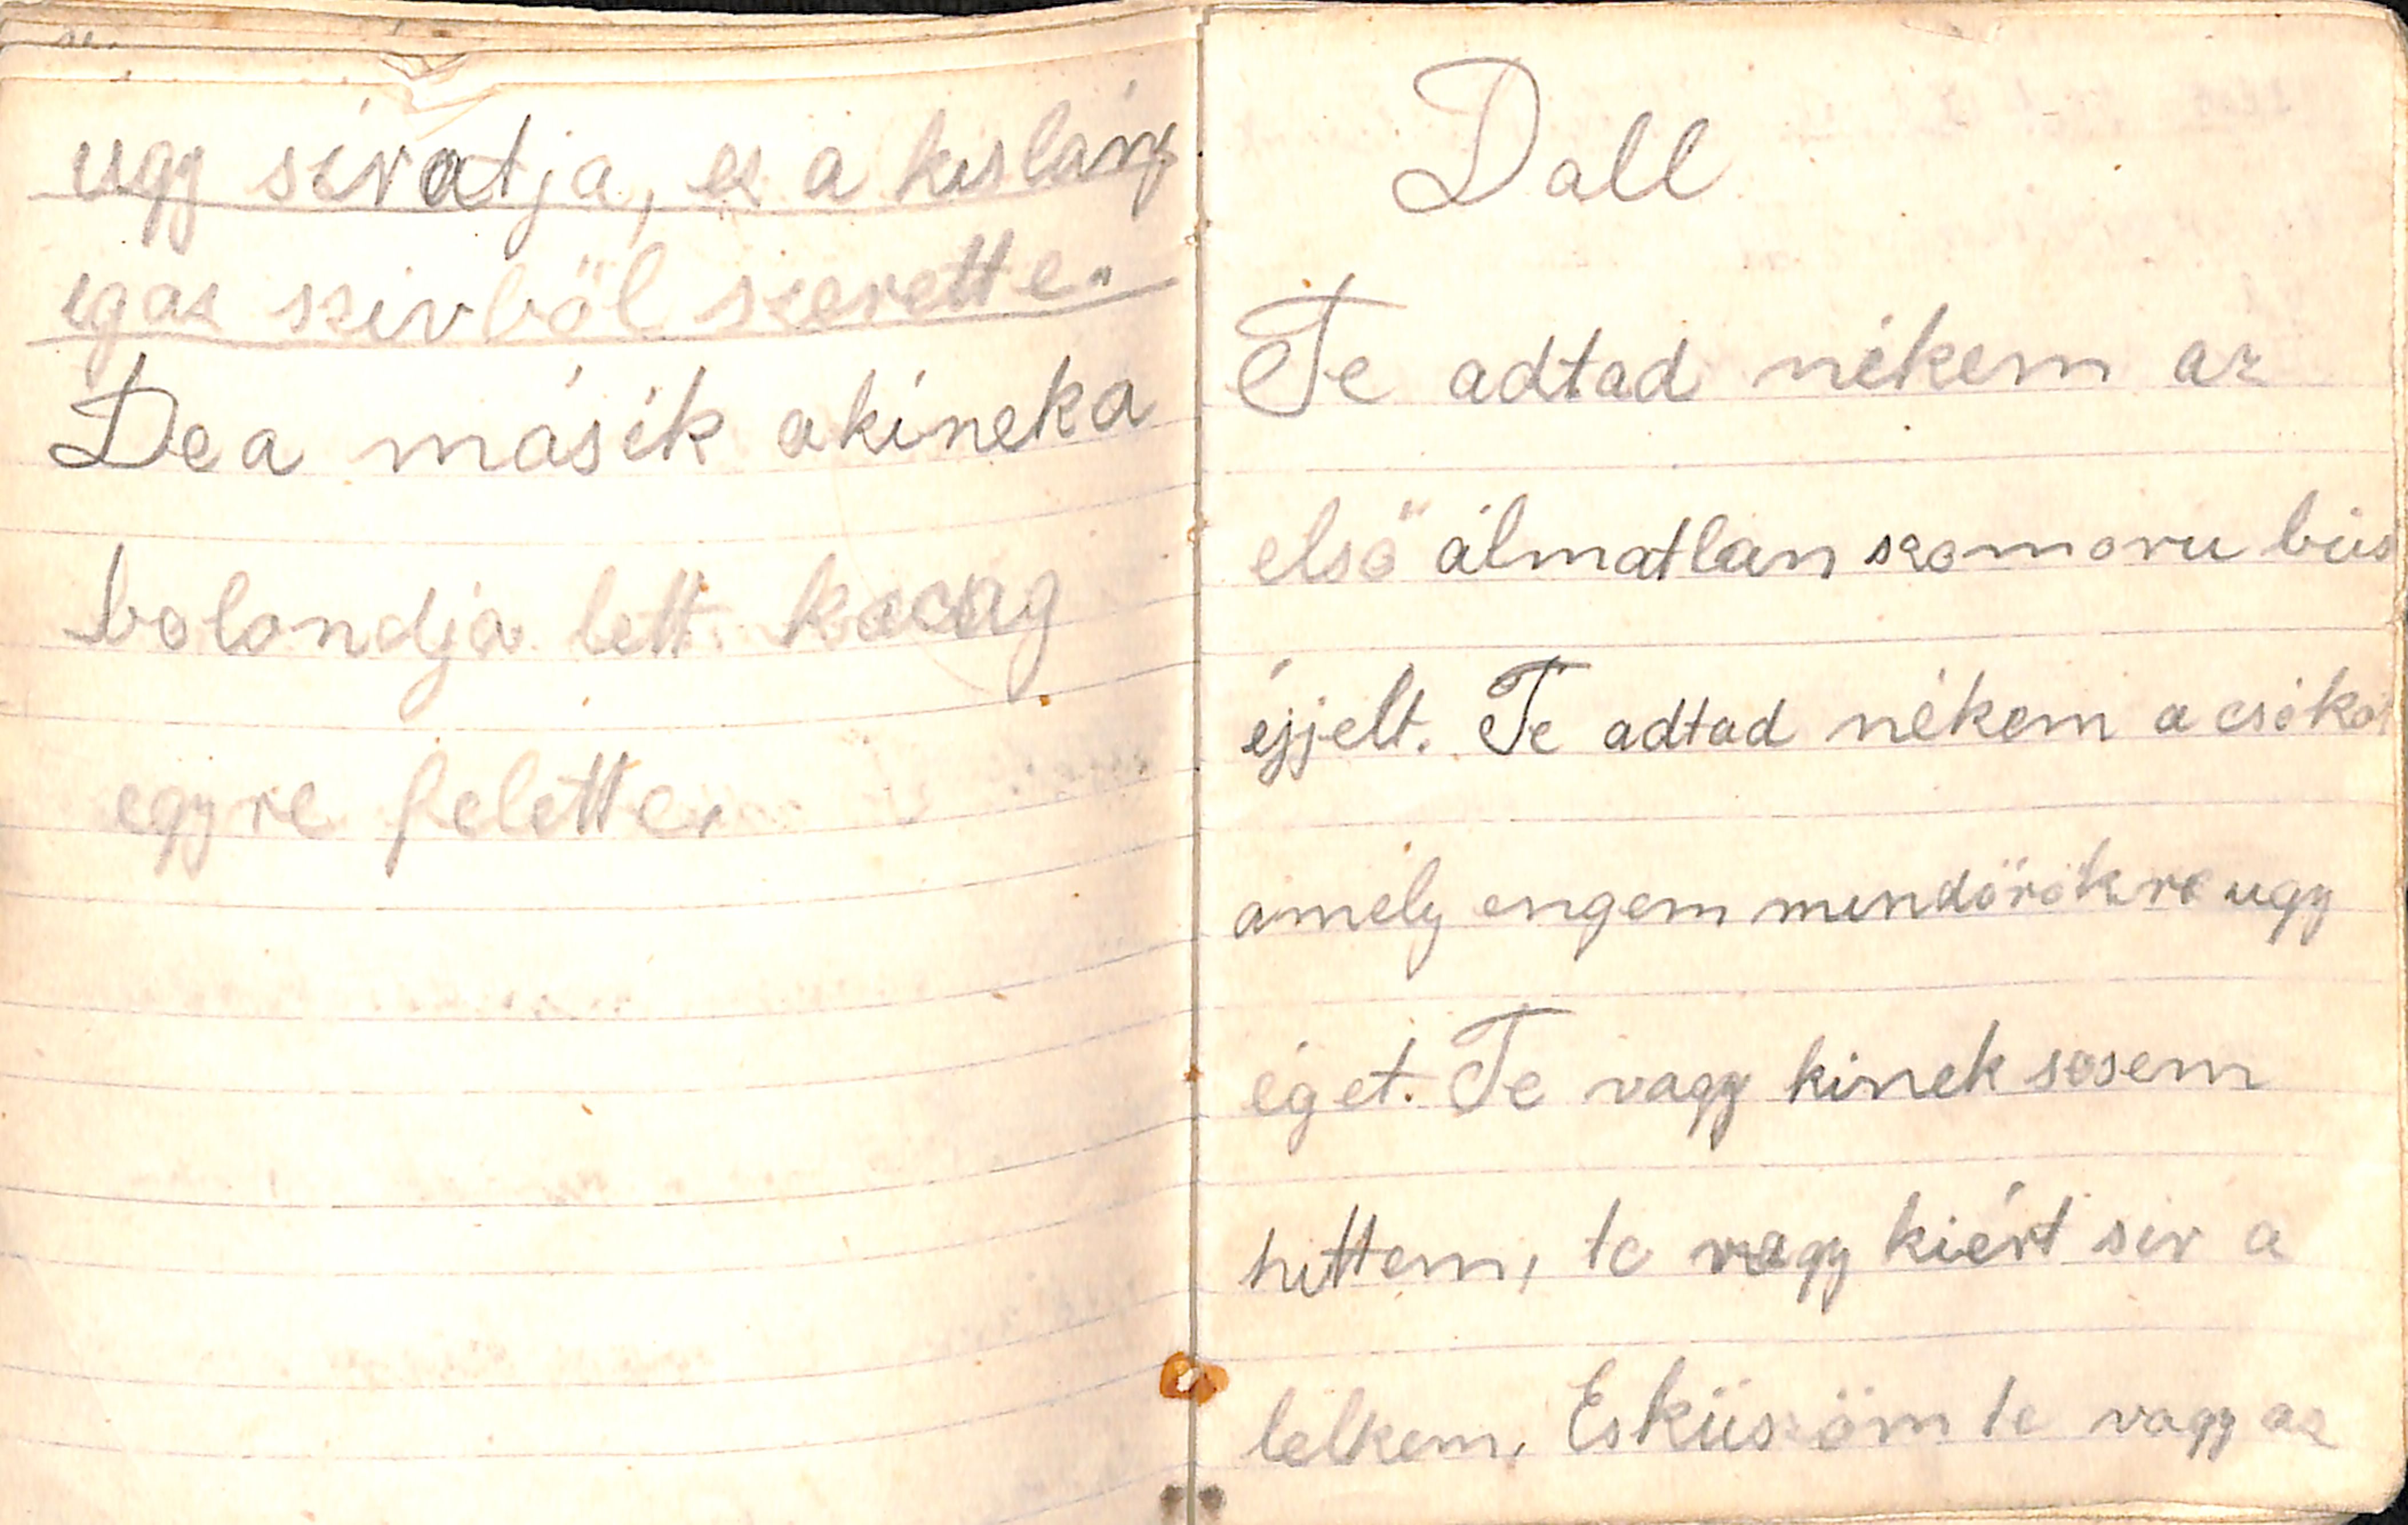 ugy siratja, ez a kislány
igaz szivböl szerette.
De a másik akinek a
bolondja lett kacag
egyre felette.
Dall
Te adtad nékem az
első álmatlan szomoru bús
éjjelt. Te adtad nékem a csókot
amely engem mindörökre ugy
éget. Te vagy kinek sosem
hittem, te vagy kiért sir a
lelkem. Esküszöm te vagy az